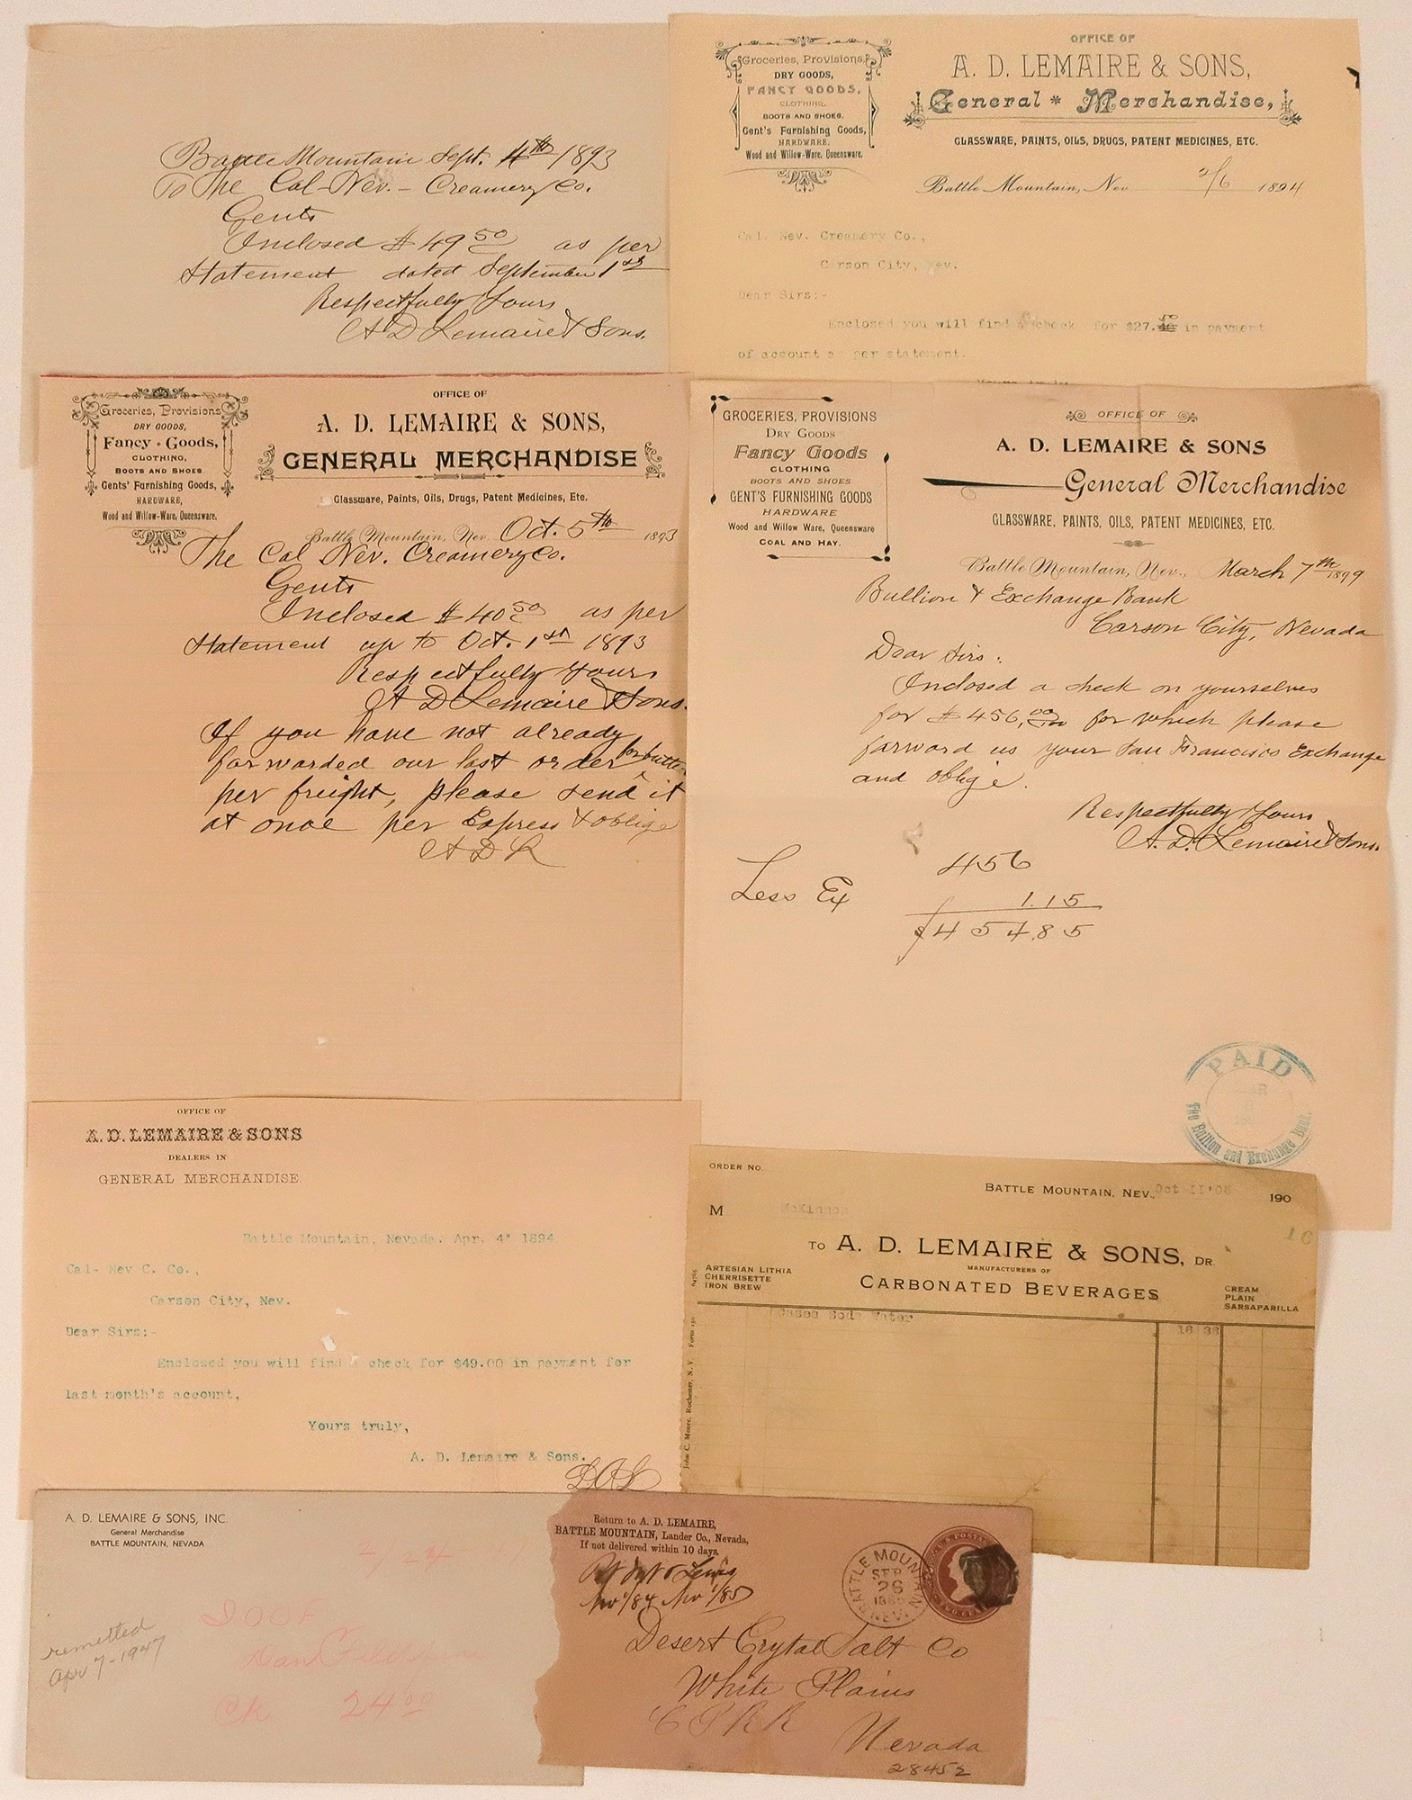 Battle Mountain Sept. 4th 1893
To The Cal-Nev.- Creamery Co.
Gents
Inclosed $ 49 50 as per
Statement dated September 1st
Respectfully Yours
A D Lemaire & Sons.
Groceries, Provisions,
DRY GOODS,
FANCY GOODS,
CLOTHING,
BOOTS AND SHOES,
Gent's Furnishing Goods,
HARDWARE,
Wood and Willow-Ware, Queensware.
OFFICE OF
A. D. LEMAIRE & SONS,
General * Merchandise,
GLASSWARE, PAINTS, OILS, DRUGS, PATENT MEDICINES, ETC.
Battle Mountain, Nev. 2/6 1894
Cal. Nev. Creamery Co.,
Carson City, Nev.
Dear Sirs:-
Enclosed you will find check for $27.50 in payment
of account as per statement.
Groceries, Provisions
DRY GOODS,
Fancy Goods,
CLOTHING,
BOOTS AND SHOES
Gents' Furnishing Goods,
HARDWARE,
Wood and Willow-Ware, Queensware.
OFFICE OF
A. D. LEMAIRE & SONS,
GENERAL MERCHANDISE
Glassware, Paints, Oils, Drugs, Patent Medicines, Etc.
Battle Mountain, Nev. Oct. 5th 1893
The Cal Nev. Creamery Co.
Gents
Inclosed $ 40 50 as per
Statement up to Oct. 1st 1893
Respectfully Yours
A D Lemaire & Sons.
If you have not already
forwarded our last order for butter
per freight, please send it
at once per Express & oblige
A D L
GROCERIES, PROVISIONS
DRY GOODS
Fancy Goods
CLOTHING
BOOTS AND SHOES
GENT'S FURNISHING GOODS
HARDWARE
Wood and Willow Ware, Queensware
COAL AND HAY.
OFFICE OF
A. D. LEMAIRE & SONS
General Merchandise
GLASSWARE, PAINTS, OILS, PATENT MEDICINES, ETC.
Battle Mountain, Nev., March 7th 1899
Bullion & Exchange Bank
Carson City, Nevada
Dear Sirs:
Inclosed a check on yourselves
for $ 456.00 for which please
forward us your San Francisco Exchange
and oblige.
Respectfully Yours
A. D. Lemaire & Sons.
456
Less Ex 1.15
$454.85
PAID
The Bullion and Exchange Bank.
OFFICE OF
A. D. LEMAIRE & SONS
DEALERS IN
GENERAL MERCHANDISE
Battle Mountain, Nevada. Apr. 4" 1894
Cal- Nev C. Co.,
Carson City, Nev.
Dear Sirs:-
Enclosed you will find check for $49.00 in payment for
last month's account,
Yours truly,
A. D. Lemaire & Sons.
ORDER NO.
BATTLE MOUNTAIN, NEV. Oct 11'08 190
M McKinnon
16
TO A. D. LEMAIRE & SONS, DR.
MANUFACTURERS OF
CARBONATED BEVERAGES
ARTESIAN LITHIA
CHERRISETTE
IRON BREW
CREAM
PLAIN
SARSAPARILLA
Cases Soda Water
John C. Moore, Rochester, N. Y.
A. D. LEMAIRE & SONS, INC.
General Merchandise
BATTLE MOUNTAIN, NEVADA
remitted
Apr 7-1947
IOOF
Ck 24 00
Return to A. D. LEMAIRE,
BATTLE MOUNTAIN, Lander Co., Nevada,
If not delivered within 10 days.
Nov 1/84 Nov 1/85
BATTLE MOUNTAIN
SEP
26
NEV.
Desert Crytal Salt Co
White Plains
C P R R
Nevada
28452